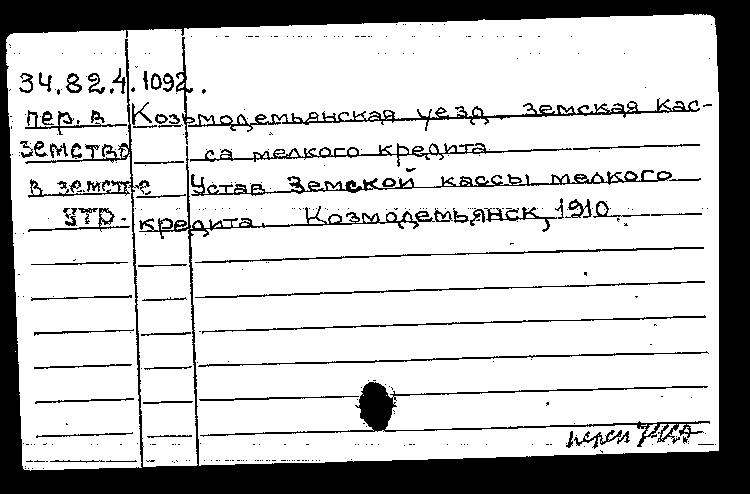 34.82.4.1092.
пер. в Козьмодемьянская уезд. земская кас-
земство са мелкого кредита
в земстве Устав Земской кассы мелкого
кредита. Козмодемьянск, 1910.